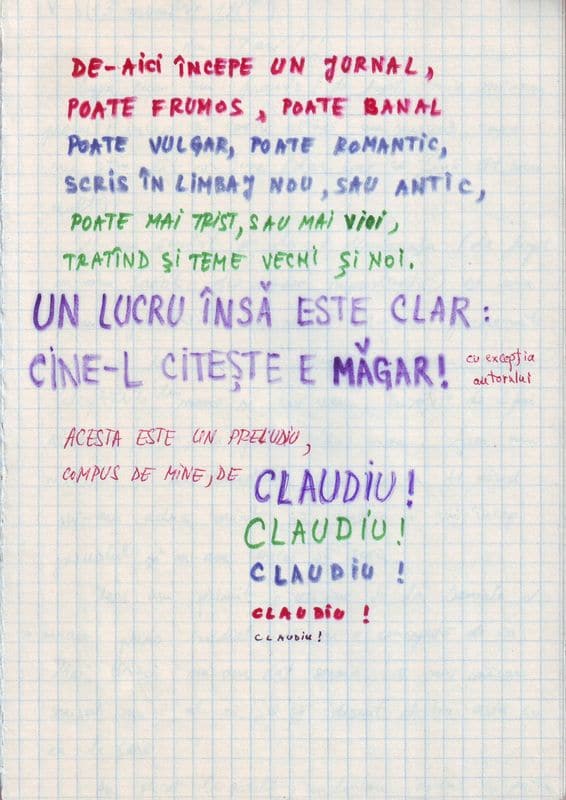 DE-AICI ÎNCEPE UN JORNAL,
POATE FRUMOS, POATE BANAL
POATE VULGAR, POATE ROMANTIC,
SCRIS ÎN LIMBAJ NOU, SAU ANTIC,
POATE MAI TRIST, SAU MAI VIOI,
TRATÎND ŞI TEME VECHI ŞI NOI.
UN LUCRU ÎNSĂ ESTE CLAR:
CINE-L CITEŞTE E MĂGAR!
cu excepţia
autorului
ACESTA ESTE UN PRELUDIU,
COMPUS DE MINE, DE
CLAUDIU!
CLAUDIU!
CLAUDIU!
CLAUDIU!
CLAUDIU!